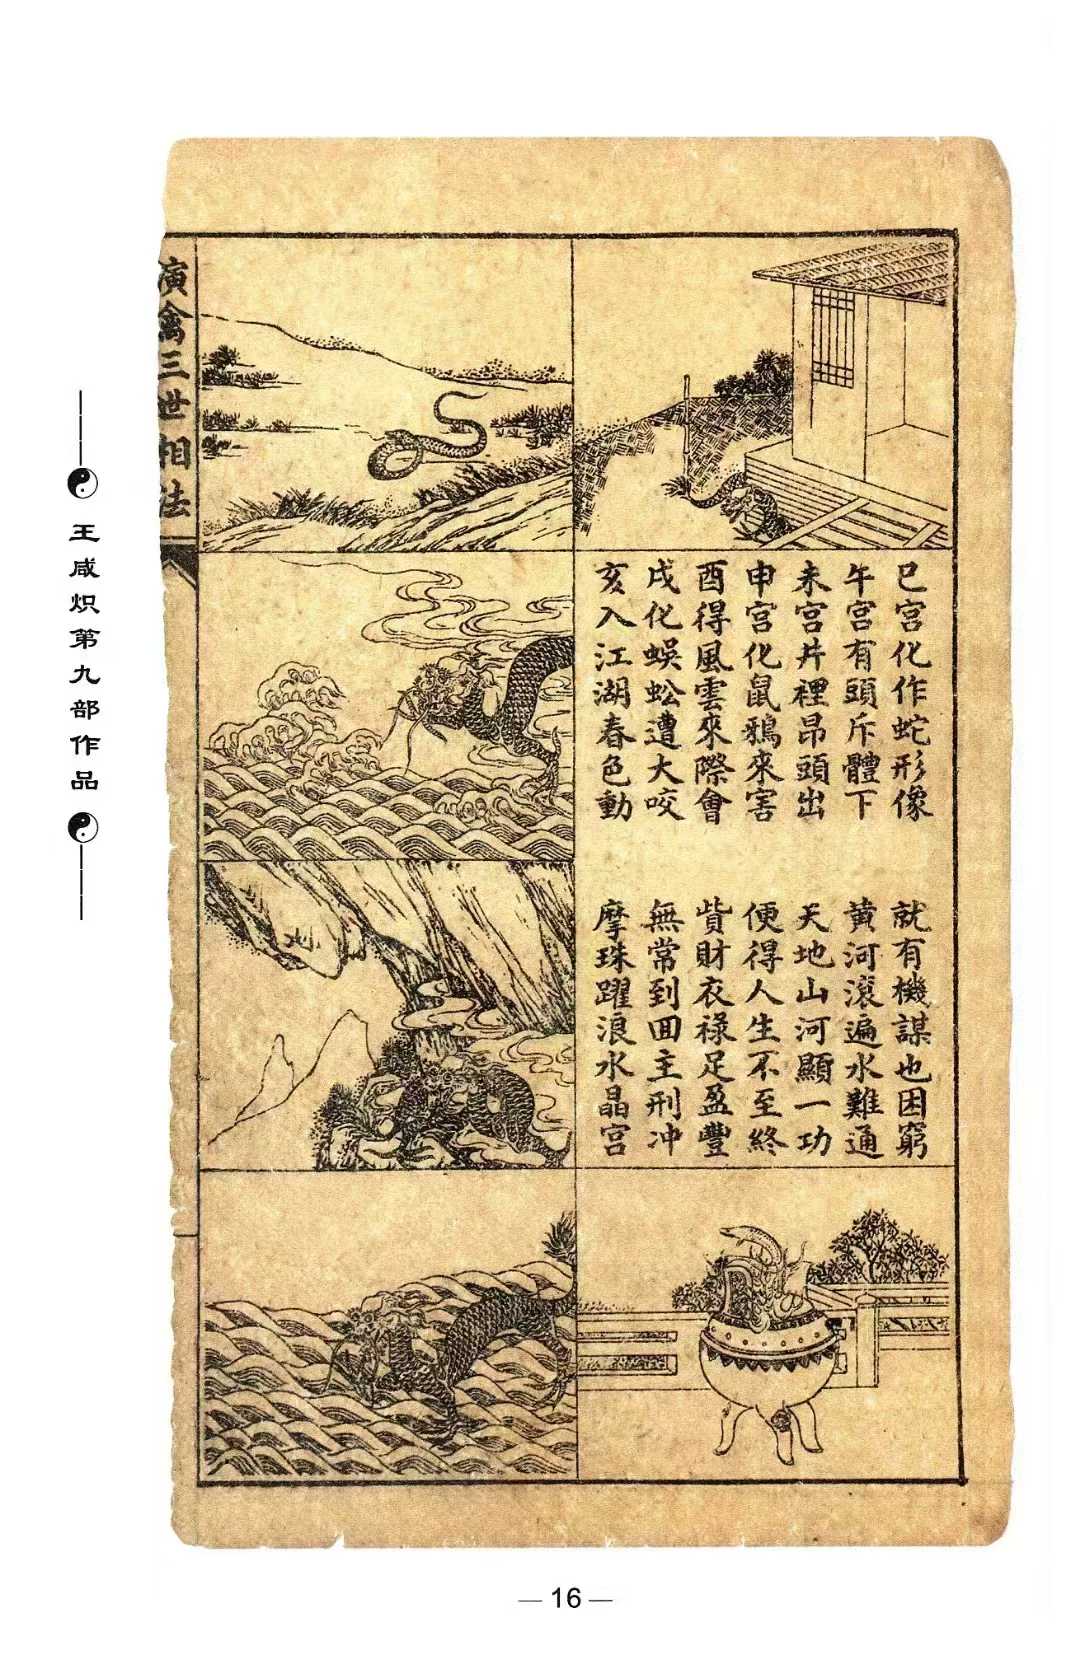 演禽三世相法
王咸炽第九部作品
巳宮化作蛇形像
就有機謀也困窮
午宮有頭斥體下
黄河滚遍水難通
未宮井裡昂頭出
天地山河顯一功
申宮化鼠鴉來害
便得人生不至終
酉得風雲來際會
貲財衣祿足盈豐
戌化蜈蚣遭大咬
無常到回主刑冲
亥入江湖春色動
摩珠躍浪水晶宮
— 16 —